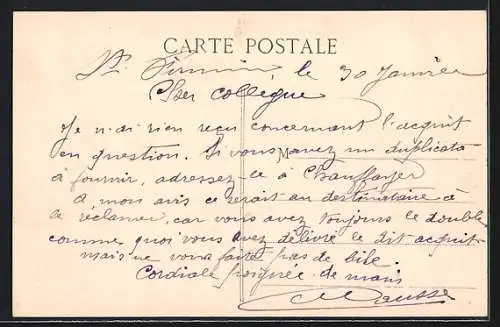 CARTE POSTALE
St Firmin, le 30 Janvier
Cher collègue
Je n'ai rien reçu concernant l'acquit
en question. Si vous avez un duplicata
M
à fournir, adressez-le à Chauffayer
à mon avis ce serait au destinataire à
le réclamer, car vous avez toujours le double
comme quoi vous avez délivré le dit acquit
mais ne vous faites pas de bile.
Cordiale poignée de mains